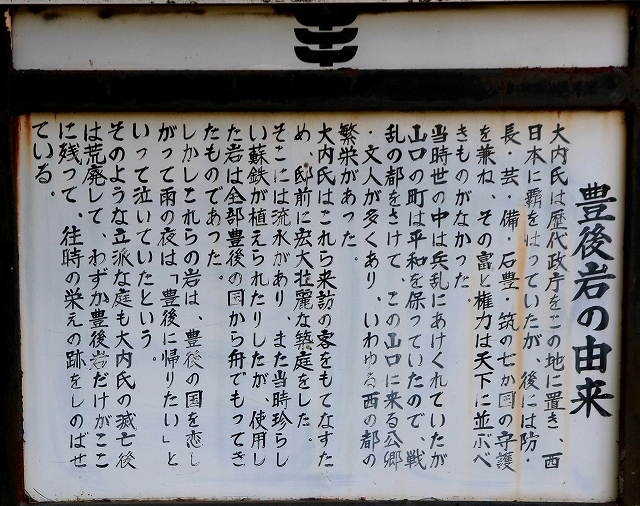 豊後岩の由来
大内氏は歴代政庁をこの地に置き、西
日本に覇をはっていたが、後には防・
長・芸・備・石豊・筑の七か国の守護
を兼ね、その富と権力は天下に並ぶべ
きものがなかった。
当時世の中は兵乱にあけくれていたが
山口の町は平和を保っていたので、戦
乱の都をさけて、この山口に来る公郷
・文人が多くあり、いわゆる西の都の
繁栄があった。
大内氏はこれら来訪の客をもてなすた
め、邸前に宏大壮麗な築庭をした。
そこには流水があり、また当時珍らし
い蘇鉄が植えられたりしたが、使用し
た岩は全部豊後の国から舟でもってき
たものであった。
しかしこれらの岩は、豊後の国を恋し
がって雨の夜は「豊後に帰りたい」と
いって泣いていたという。
そのような立派な庭も大内氏の滅亡後
は荒廃して、わずか豊後岩だけがここ
に残って、往時の栄えの跡をしのばせ
ている。